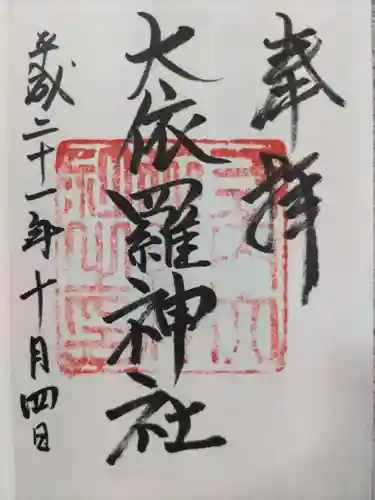 奉拝
大依羅神社
平成二十一年十月四日